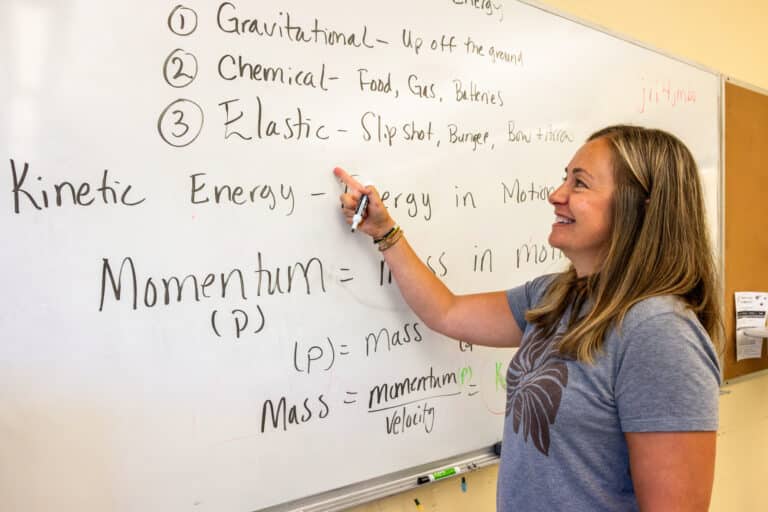 Energy,
① Gravitational - Up off the ground
② Chemical - Food, Gas, Batteries
③ Elastic - Slip shot, Bungee, Bow + Arrow
Kinetic Energy - Energy in Motion
Momentum = mass in moti
(p)
(p) = mass
Mass = momentum(p) =
velocity